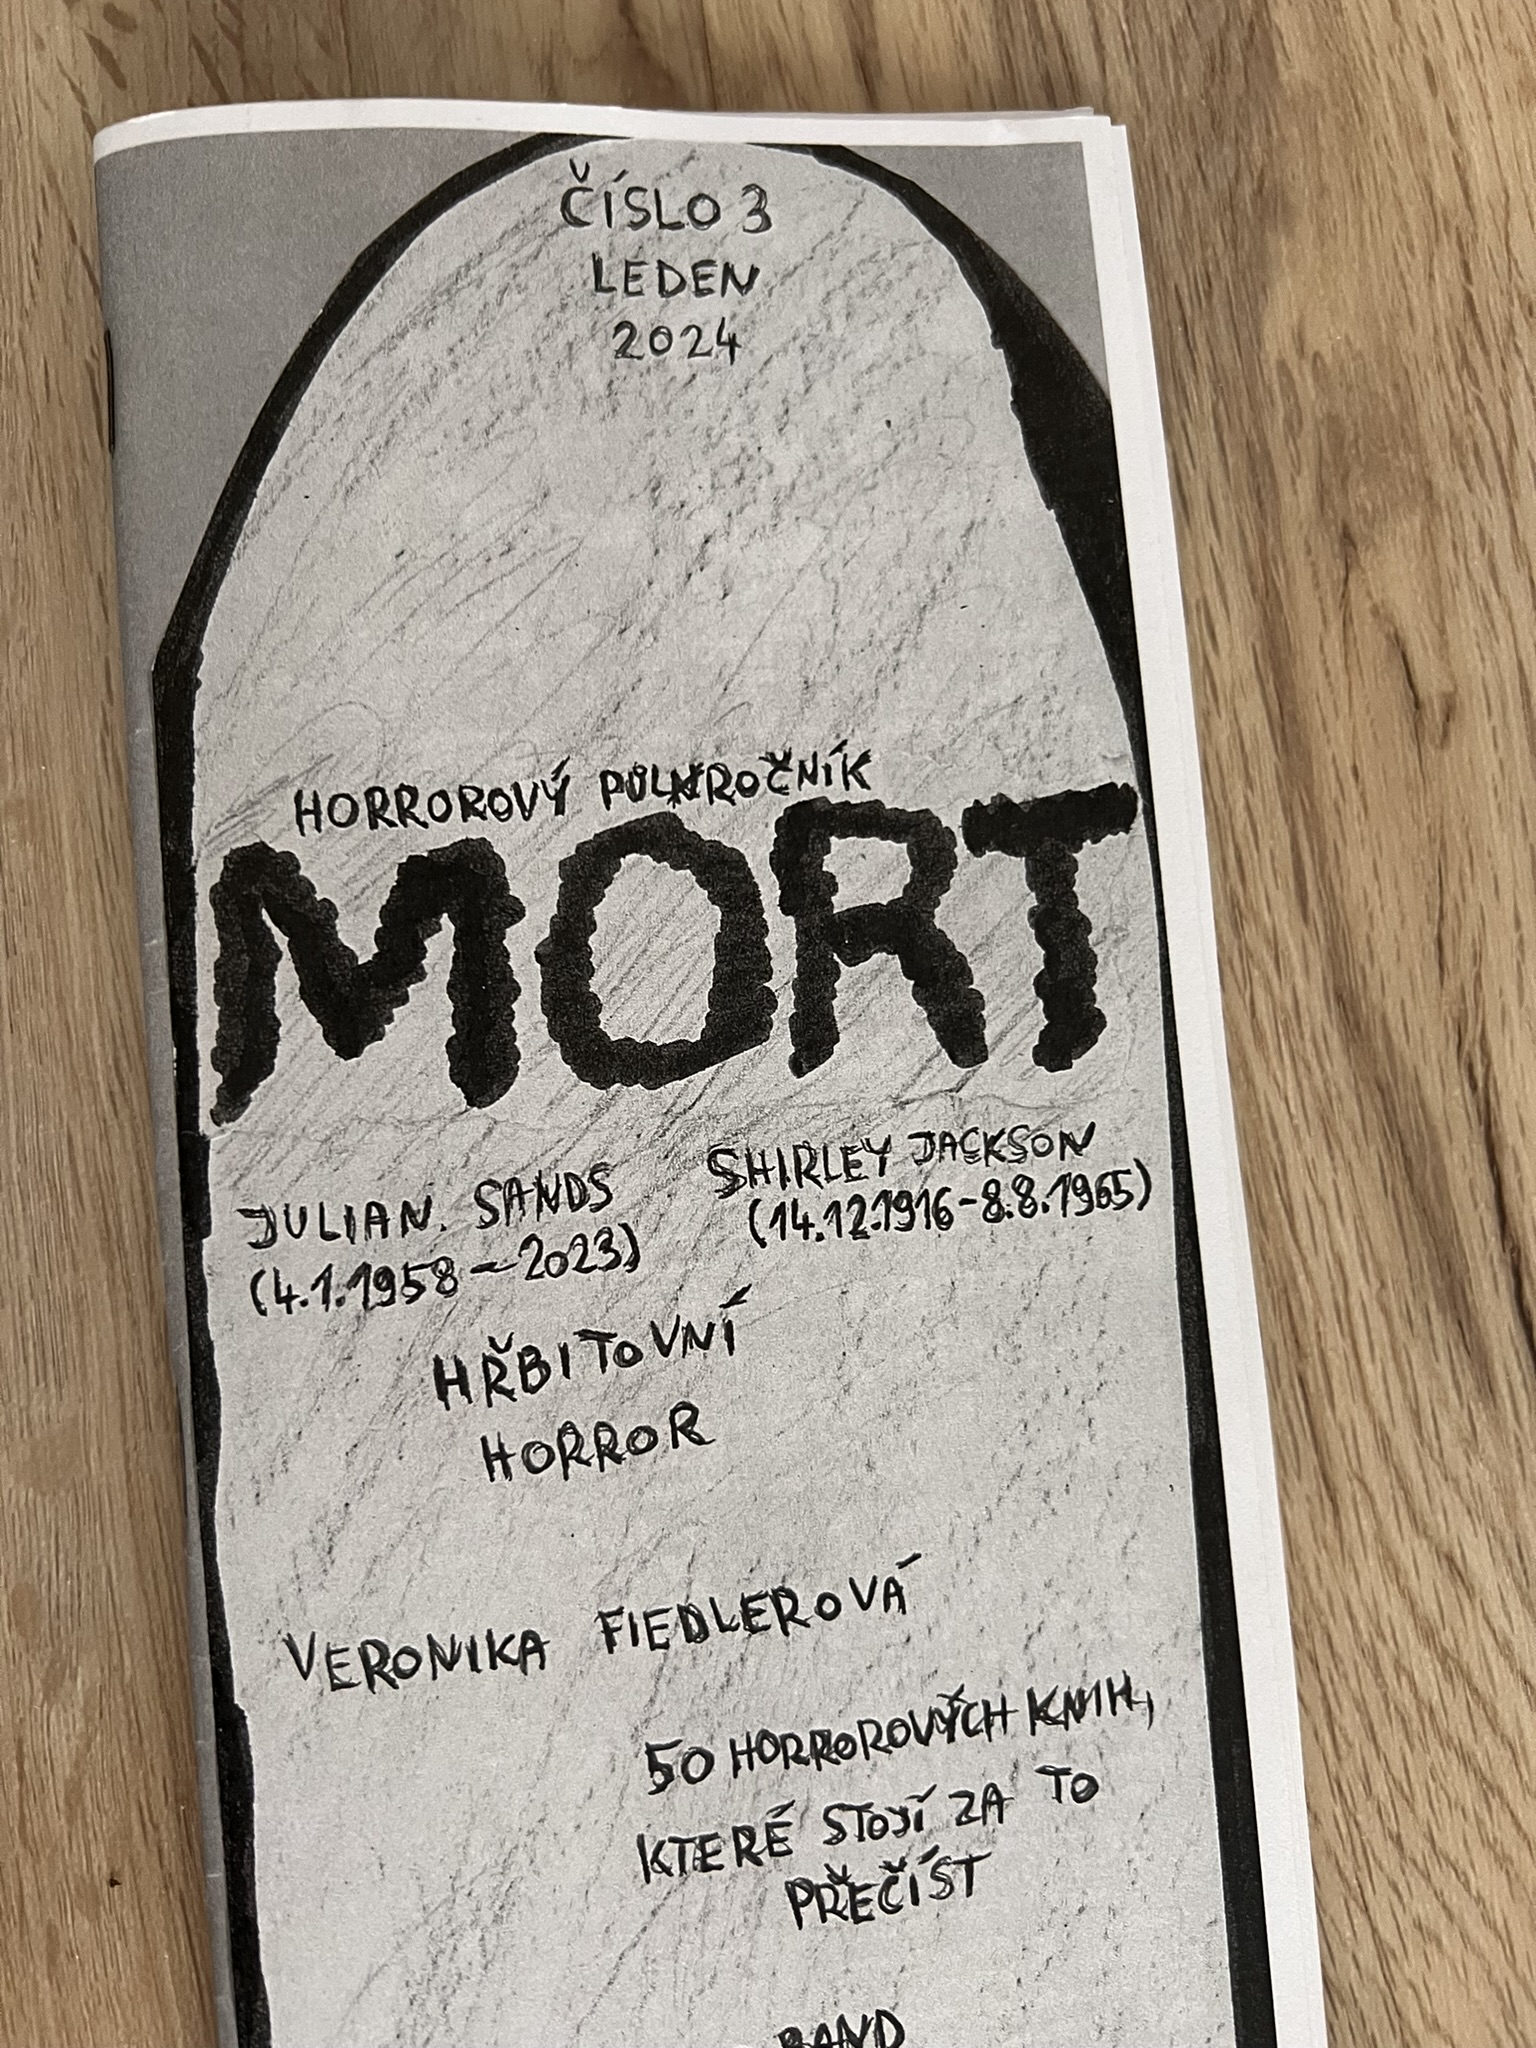 ČÍSLO 3
LEDEN
2024
HORROROVÝ PŮLNROČNÍK
MORT
JULIAN. SANDS
(4.1.1958-2023)
SHIRLEY JACKSON
(14.12.1916-8.8.1965)
HŘBITOVNÍ
HORROR
VERONIKA FIEDLEROVÁ
50 HORROROVÝCH KNIH,
KTERÉ STOJÍ ZA TO
PŘEČÍST
BAND